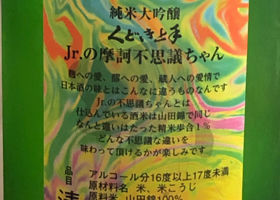 純米大吟醸
くどき上手
Jr.の摩訶不思議ちゃん
麹への愛、醪への愛、蔵人への愛情で
日本酒の味とはこんなに違うものなんです
Jr.の不思議ちゃんとは
仕込んでいる酒米は山田錦で同じ
なんと違いはたった精米歩合1%
どんな不思議な違いを
味わって頂けるかが楽しみです
品目
清
アルコール分16度以上17度未満
原材料名 米、米こうじ
原料米 山田錦100%